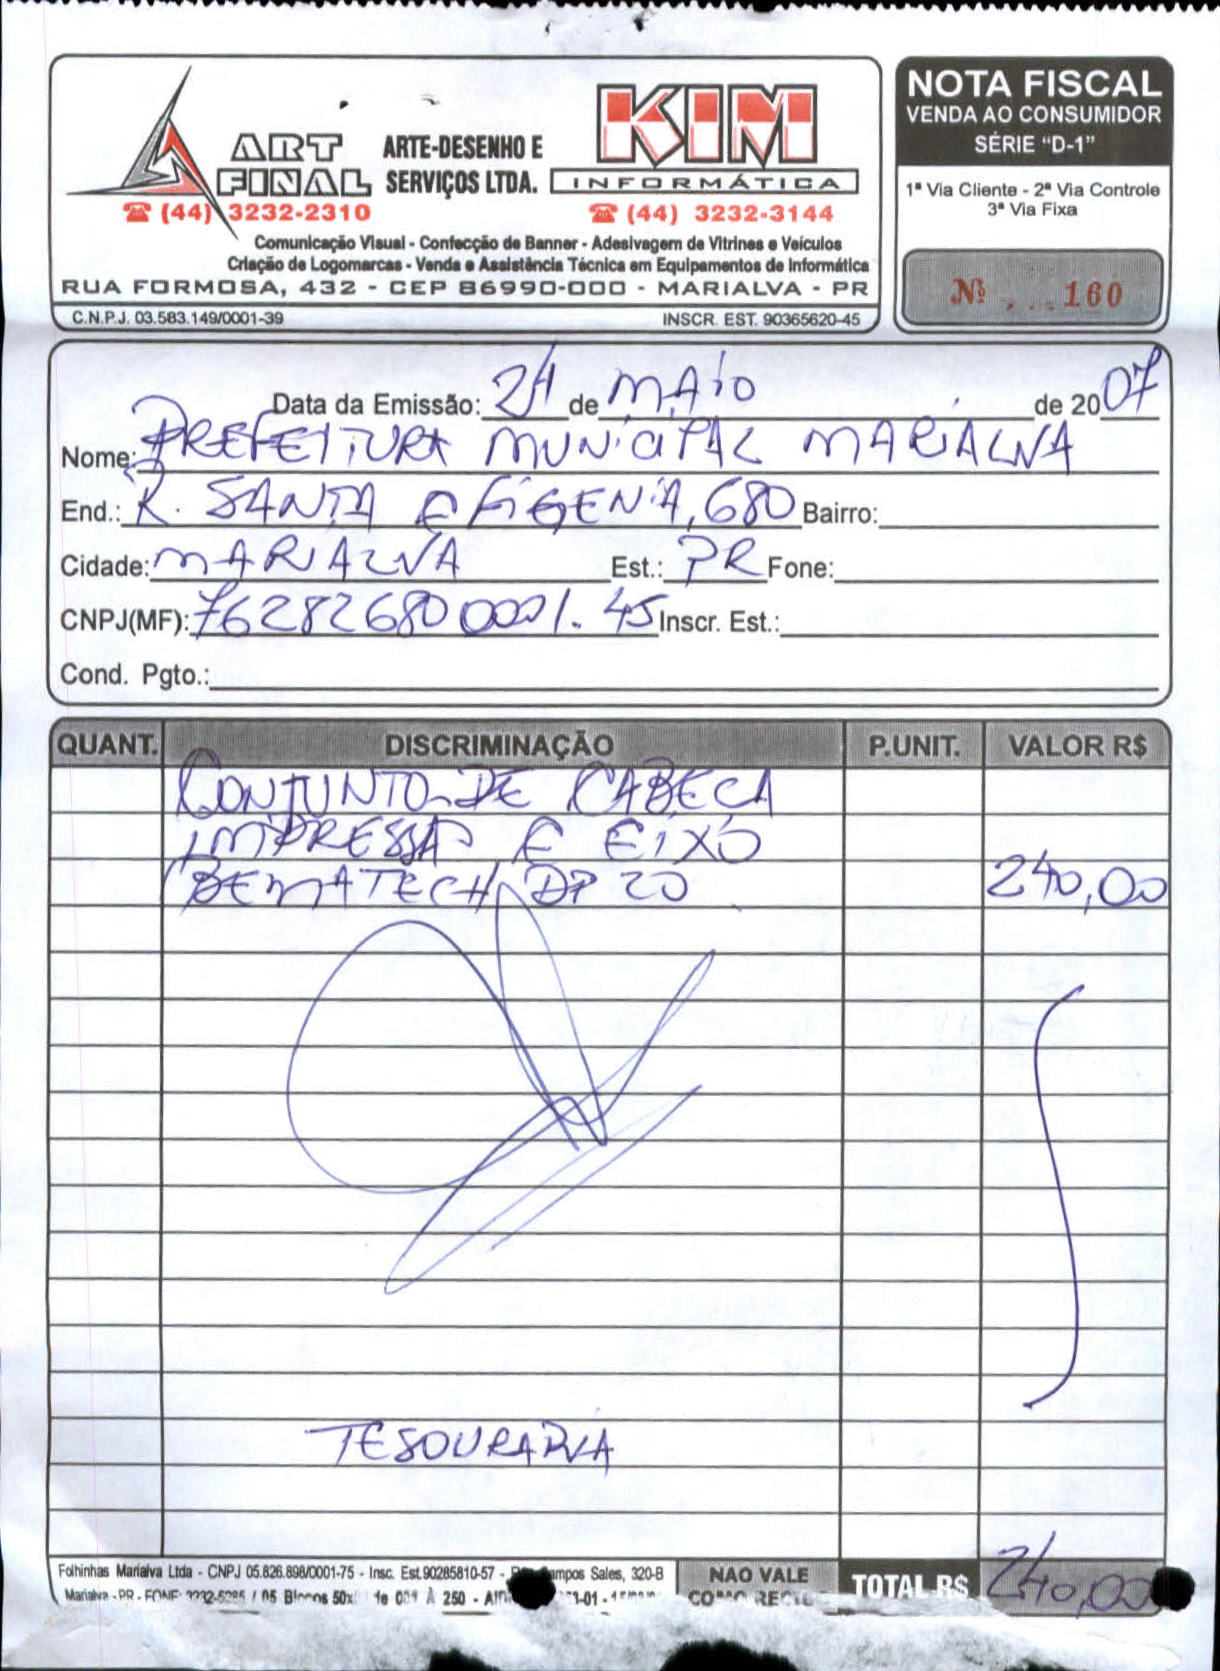 ART FINAL ARTE-DESENHO E SERVIÇOS LTDA.
KIM INFORMÁTICA
(44) 3232-2310
(44) 3232-3144
Comunicação Visual - Confecção de Banner - Adesivagem de Vitrines e Veículos
Criação de Logomarcas - Venda e Assistência Técnica em Equipamentos de Informática
RUA FORMOSA, 432 - CEP 86990-000 - MARIALVA - PR
C.N.P.J. 03.583.149/0001-39 INSCR. EST. 90365620-45
NOTA FISCAL
VENDA AO CONSUMIDOR
SÉRIE “D-1”
1ª Via Cliente - 2ª Via Controle
3ª Via Fixa
Nº 160
Data da Emissão: 24 de MAIO de 2007
Nome: PREFEITURA MUNICIPAL MARIALVA
End.: R. SANTA EFIGENIA, 680 Bairro:
Cidade: MARIALVA Est.: PR Fone:
CNPJ(MF): 762826800001.45 Inscr. Est.:
Cond. Pgto.:
QUANT. DISCRIMINAÇÃO P.UNIT. VALOR R$
CONJUNTO DE CABECA
IMPRESSAO E EIXO
BEMATECH DP 20 240,00
TESOURARIA
Folhinhas Marialva Ltda - CNPJ 05.826.898/0001-75 - Insc. Est.90285810-57 - Sales, 320-B
Marialva - PR - FONE: 05 Blocos 250
NAO VALE
TOTAL R$ 240,00